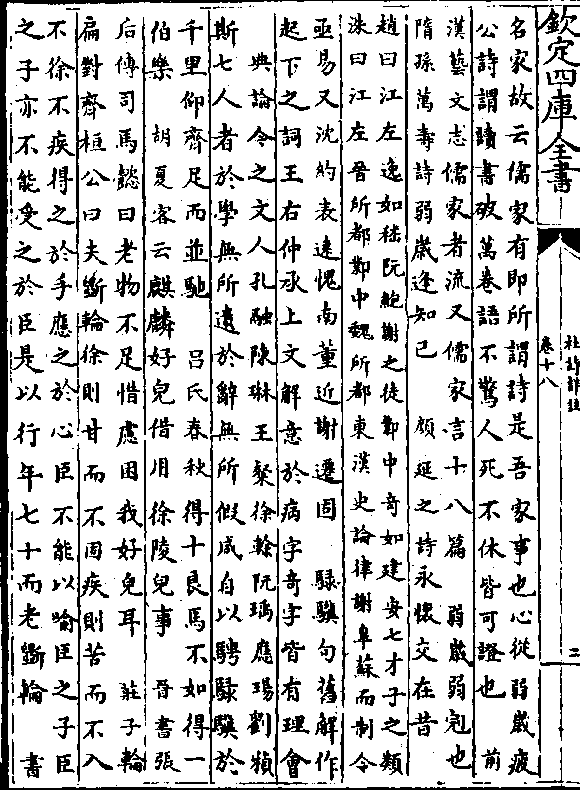 欽定四庫全書
杜詩詳註
卷十八
二
名家故云儒家有即所謂詩是吾家事也心從弱歲疲
公詩謂讀書破萬卷語不驚人死不休皆可證也 前
漢藝文志儒家者流又儒家言十八篇 弱歲弱冠也
隋孫萬壽詩弱歲逢知己 顔延之詩永懷交在昔
趙曰江左逸如嵇阮鮑謝之徒鄴中奇如建安七才子之類
洙曰江左晉所都鄴中魏所都東漢史論律謝臯蘇而制令
亟易又沈約表遠愧南董近謝遷固 騄驥句舊解作
起下之詞王右仲承上文解意於病字奇字皆有理會
典論今之文人孔融陳琳王粲徐幹阮瑀應瑒劉楨
斯七人者於學無所遺於辭無所假咸自以騁騄驥於
千里仰齊足而並馳 吕氏春秋得十良馬不如得一
伯樂 胡夏客云麒麟好兒借用徐陵兒事 晉書張
后傳司馬懿曰老物不足惜慮困我好兒耳 莊子輪
扁對齊桓公曰夫斵輪徐則甘而不固疾則苦而不入
不徐不疾得之於手應之於心臣不能以喻臣之子臣
之子亦不能受之於臣是以行年七十而老斵輪 書